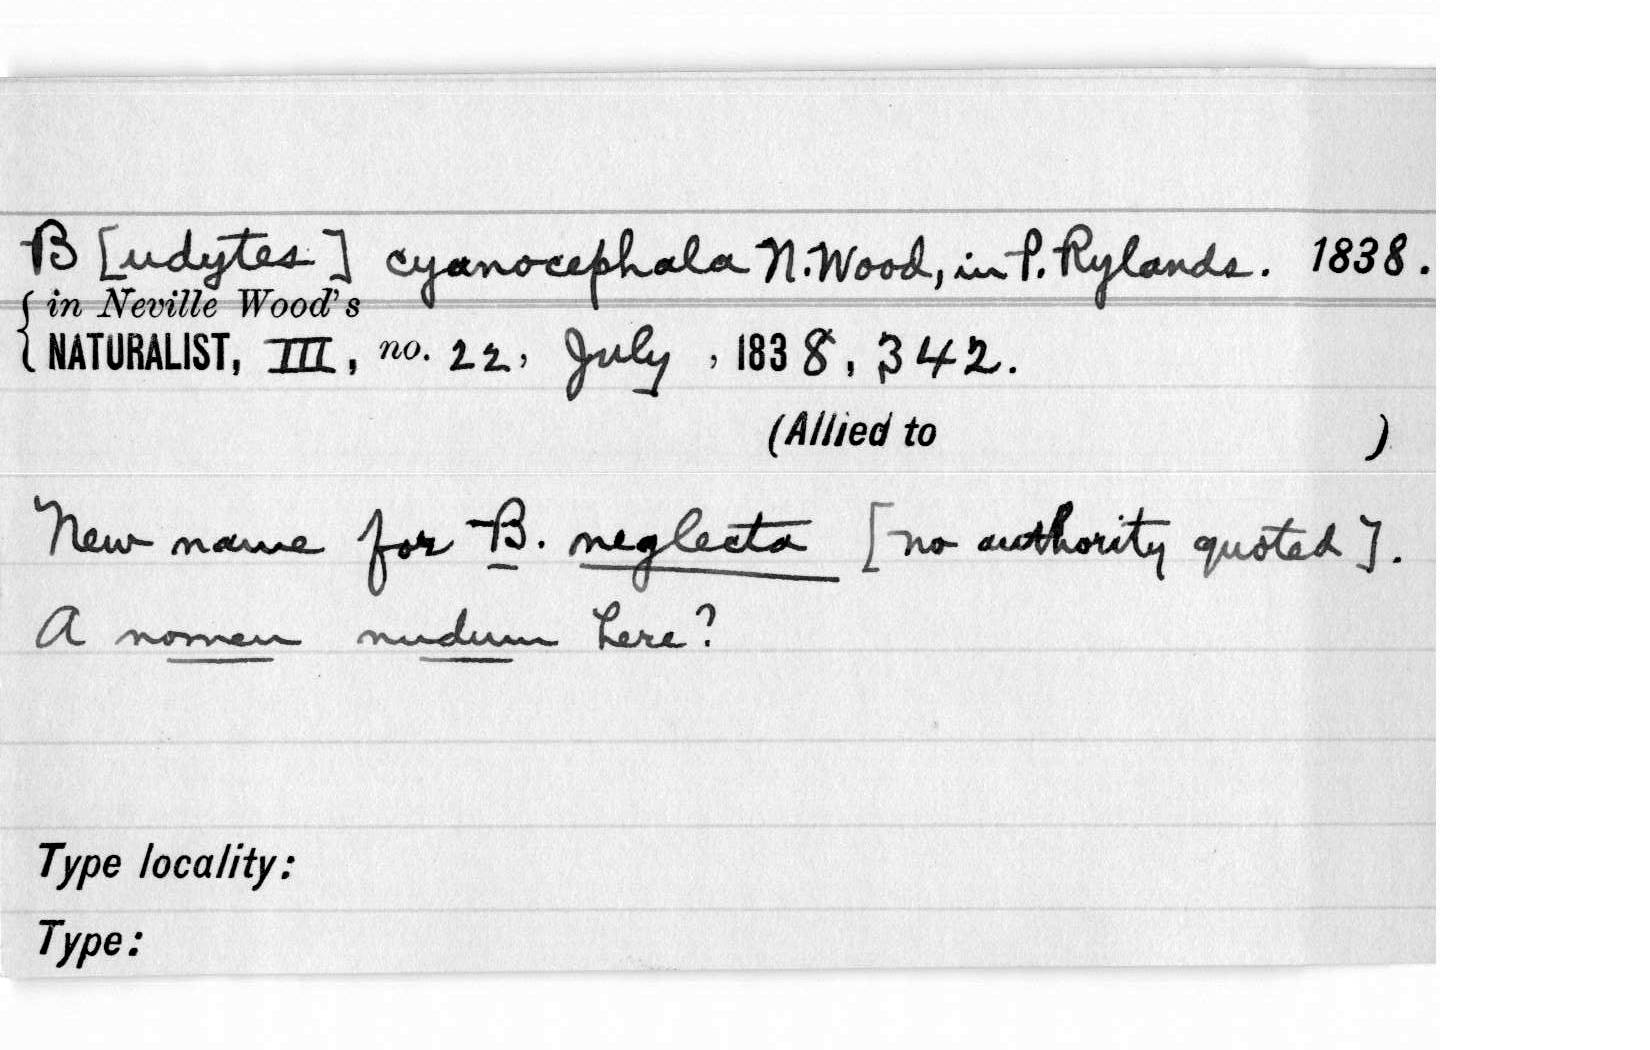 B[udytes] cyanocephala N. Wood, in P. Rylands. 1838.
in Neville Wood's
NATURALIST, III, no. 22, July, 1838, 342.
(Allied to )
New name for B. neglecta [no authority quoted].
A nomen nudum here?
Type locality:
Type: